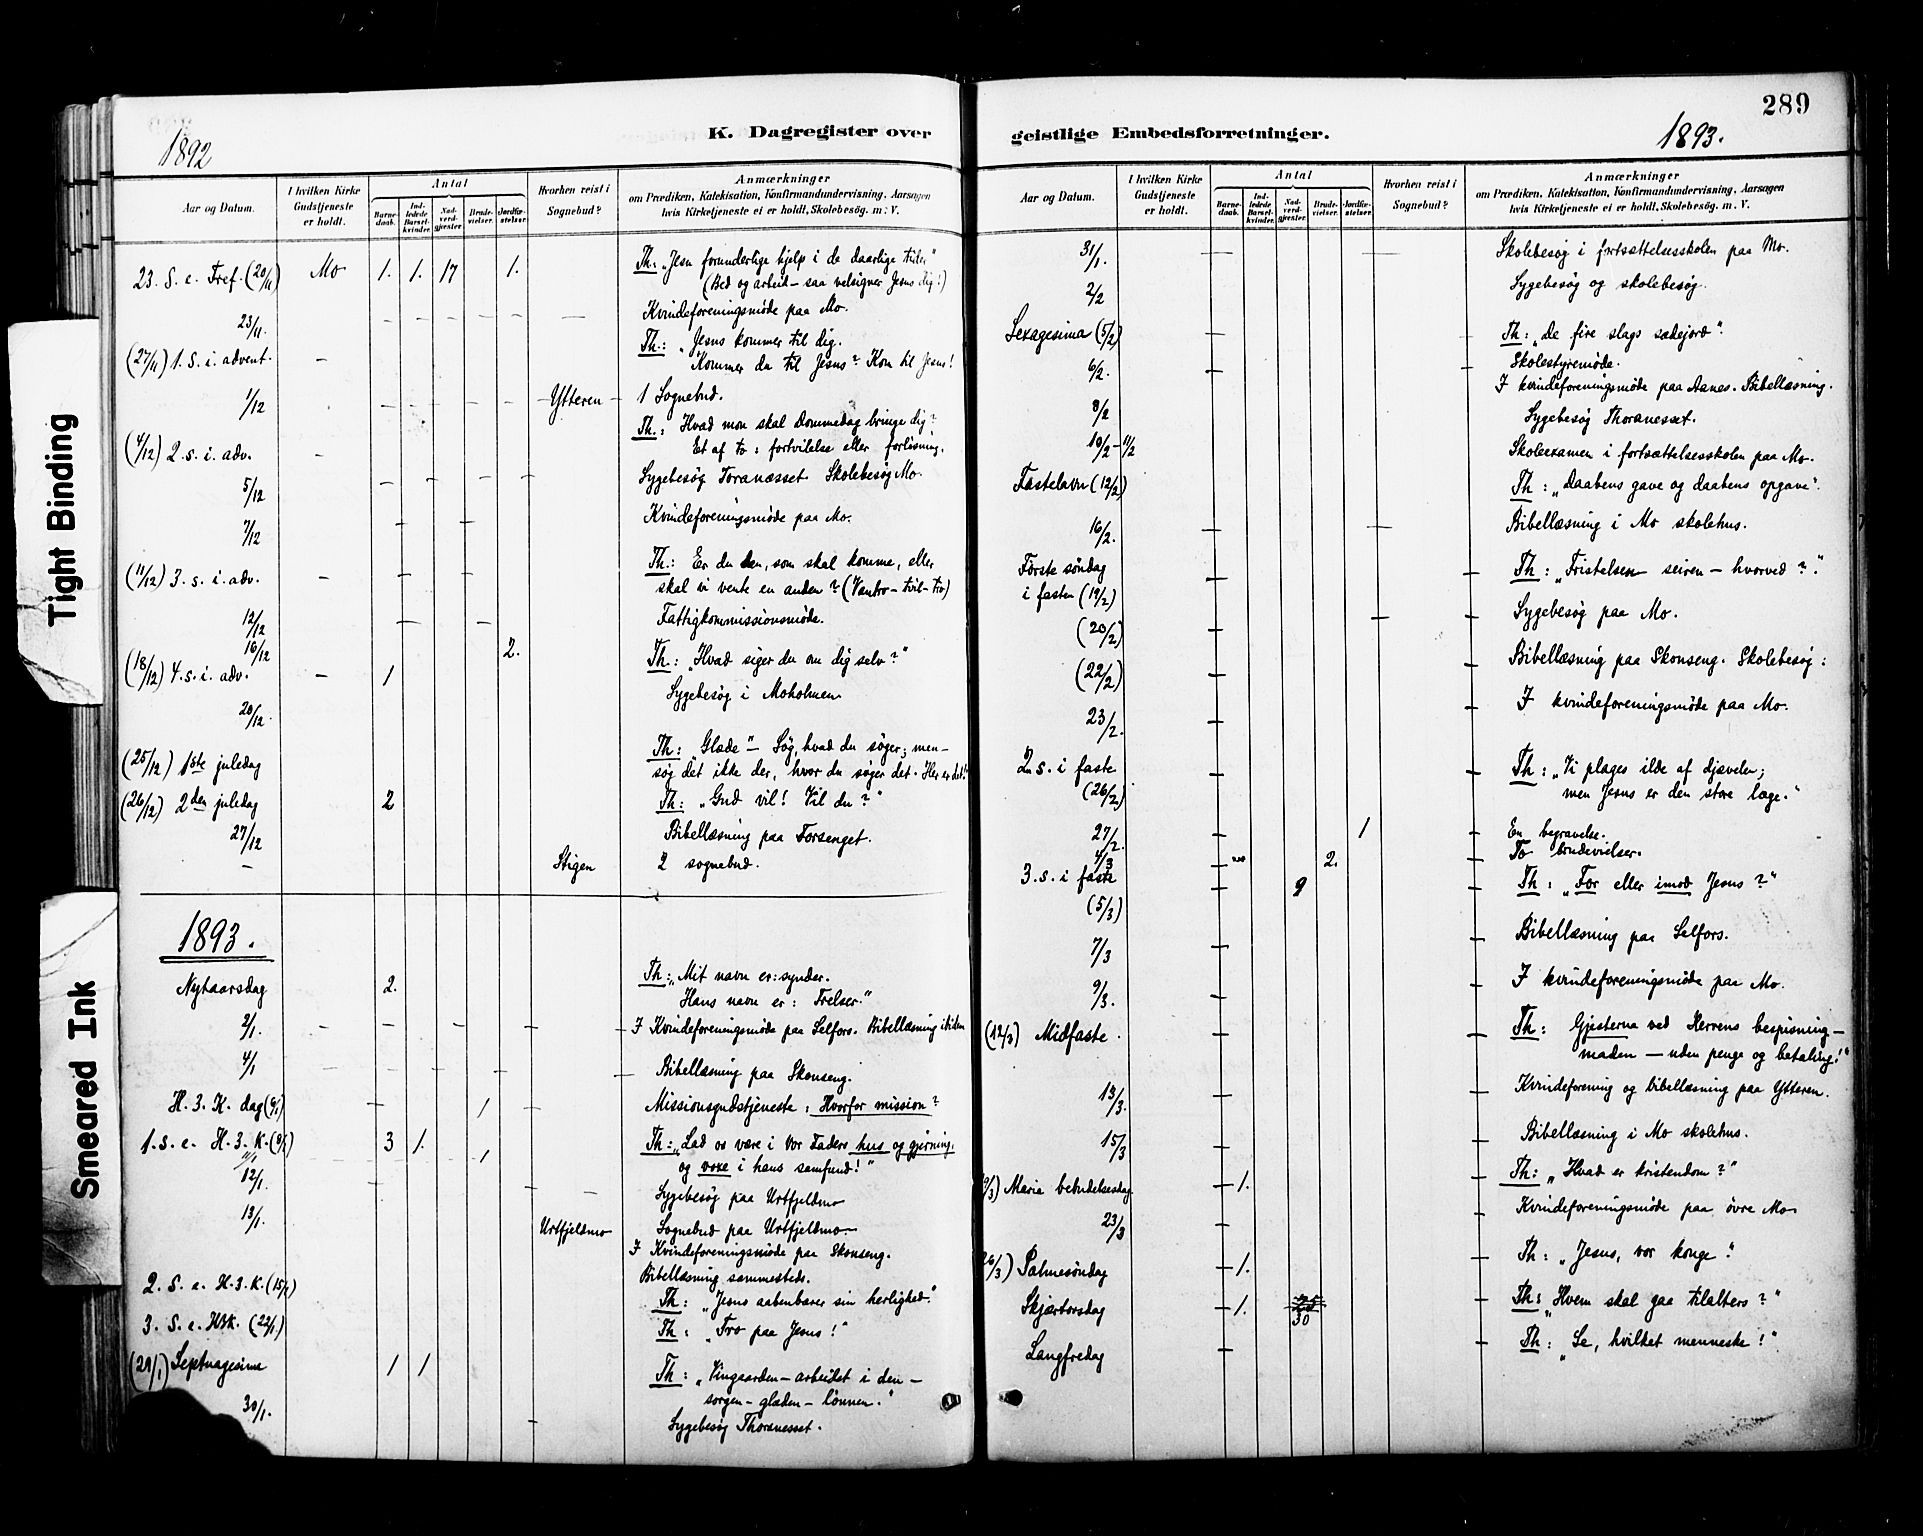 Tight Binding
Smeared Ink
289
K. Dagregister over
geistlige Embedsforretninger.
1892
Aar og Datum.
I hvilken Kirke Gudstjeneste er holdt.
Antal
Barne-daab.
Ind-ledede Barsel-kvinder.
Nad-verd-gjester.
Brude-vielser.
Jordfæ-stelser.
Hvorhen reist i Sognebud?
Anmærkninger
om Prædiken, Katekisation, Konfirmandundervisning, Aarsagen
hvis Kirketjeneste ei er holdt, Skolebesøg. m: V.
23. S. e. Tref. (20/11) Mo 1. 1. 17 1. Th: „Jesu forunderlige hjelp i de daarlige tider“
(Bed og arbeid – saa velsigner Jesus dig!)
23/11. Kvindeforeningsmøde paa Mo.
(27/11) 1. S. i. advent. – Th: „Jesus kommer til dig.
Kommer du til Jesus? Kom til Jesus!
1/12 – Ytteren – 1 Sognebud.
(4/12) 2. s. i. adv. – Th: Hvad mon skal dommedag bringe dig?
Et af to: fortvilelse eller forløsning.
5/12 Sygebesøg Toranæsset. Skolebesøg Mo.
7/12 Kvindeforeningsmøde paa Mo.
(11/12) 3. s. i. adv. – Th: Er du den, som skal komme, eller
skal vi vente en anden? (Vantro – tvil – tro)
12/12 Fattigkommissionsmøde.
16/12 2.
(18/12) 4. s. i. adv. – 1 Th: „Hvad siger du om dig selv?“
20/12. Sygebesøg i Moholmen
(25/12) 1ste juledag Th: Glæde“ – Søg, hvad du søger; men –
søg det ikke der, hvor du søger det. Her er det!“
(26/12) 2den juledag 2 Th: „Gud vil! Vil du?“
27/12 Bibellæsning paa Forsenget.
– Stigen 2 sognebud.
1893.
Nytaarsdag 2. Th: „Mit navn er: synder.
Hans navn er: Frelser.“
2/1. – I Kvindeforeningsmøde paa Selfors. Bibellæsning
4/1 – Bibellæsning paa Skonseng.
H. 3. K. dag (6/1) – 1 – Missionsgudstjeneste: Hvorfor mission?
1. s. e. H. 3. K. (8/1) 3 1. Th: „Lad os være i vor Faders hus og gjerning,
11/1 1 og voxe i hans samfund!“
12/1. – Sygebesøg paa Urtfjeldmo
13/1. Urtfjeldmo Sognebud paa Urtfjeldmo
I Kvindeforeningsmøde paa Skonseng.
Bibellæsning sammesteds.
2. S. e. H. 3. K. (15/1) Th: „Jesus aabenbarer sin herlighed.“
3. S. e. H3K. (22/1.) Th: „Tro paa Jesus!“
(29/1) Septuagesima 1 1 Th: „Vingaarden – arbeidet i den –
sorgen – glæden – lønnen.“
30/1. – Sygebesøg Thoranesset.
1893.
Aar og Datum.
I hvilken Kirke Gudstjeneste er holdt.
Antal
Barne-daab.
Ind-ledede Barsel-kvinder.
Nad-verd-gjester.
Brude-vielser.
Jordfæ-stelser.
Hvorhen reist i Sognebud?
Anmærkninger
om Prædiken, Katekisation, Konfirmandundervisning, Aarsagen
hvis Kirketjeneste ei er holdt, Skolebesøg. m. V.
31/1. – Skolebesøg i fortsættelsesskolen paa Mo.
2/2 Sygebesøg og skolebesøg.
Sexagesima (5/2) – Th: „De fire slags sædejord“.
6/2. – Skolestyremøde.
I kvindeforeningsmøde paa Aanes. Bibellæsning.
8/2 Sygebesøg Thoranesset.
10/2 – 11/2 Skoleexamen i fortsættelsesskolen paa Mo.
Fastelavn (12/2) Th: „Daabens gave og daabens opgave“.
16/2. – Bibellæsning i Mo skolehus.
Første søndag
i fasten (19/2) – Th: „Fristelsen seiren – hvorved?“.
(20/2) – Sygebesøg paa Mo.
(22/2) – Bibellæsning paa Skonseng. Skolebesøg:
23/2. – I kvindeforeningsmøde paa Mo.
2. s. i faste
(26/2) – Th: „Vi plages ilde af djævelen;
men Jesus er den store læge.“
27/2. – 1 – En begravelse.
4/3 – 2. – To brudevielser.
3. s. i faste
(5/3) – 9 – Th: „For eller imod Jesus?“
7/3 – Bibellæsning paa Selfors.
9/3. – I kvindeforeningsmøde paa Mo.
(12/3) Midfaste. – Th: Gjesterne ved Herrens bespisning –
maden – uden penge og betaling!“
13/3. – Kvindeforening og bibellæsning paa Ytteren.
15/3 – Bibellæsning i Mo skolehus.
Maria bebudelsesdag – 1. – Th: „Hvad er kristendom?“
23/3 – Kvindeforeningsmøde paa øvre Mo
(26/3) Palmesøndag – 1. – Th: „Jesus, vor konge“.
Skjærtorsdag – 1. 30 – Th: „Hvem skal gaa tilalters?“
Langfredag – Th: „Se, hvilket menneske!“